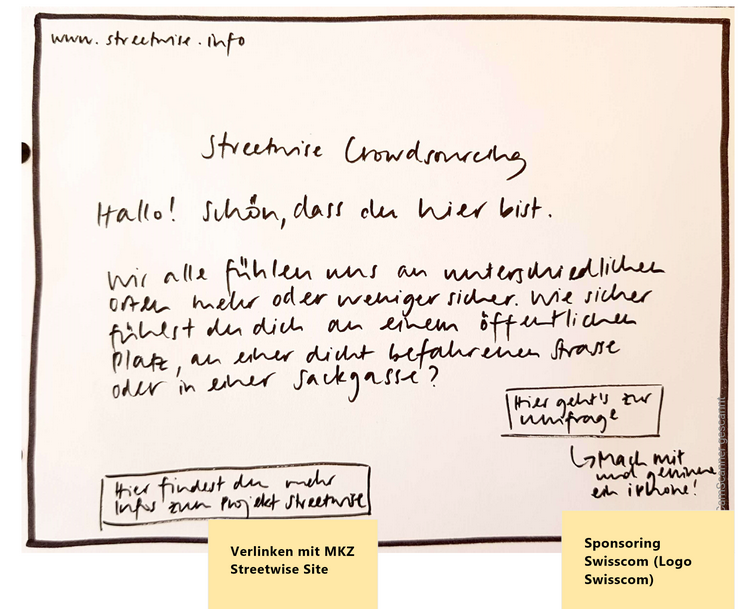 www.streetwise.info
Streetwise Crowdsourcing
Hallo! Schön, dass du hier bist.
Wir alle fühlen uns an unterschiedlichen
Orten mehr oder weniger sicher. Wie sicher
fühlst du dich an einem öffentlichen
Platz, an einer dicht befahrenen Strasse
oder in einer Sackgasse?
Hier geht's zur
Umfrage
Mach mit
und gewinne
ein iPhone!
Hier findest du mehr
Infos zum Projekt Streetwise
Verlinken mit MKZ
Streetwise Site
Sponsoring
Swisscom (Logo
Swisscom)
CamScanner gescannt